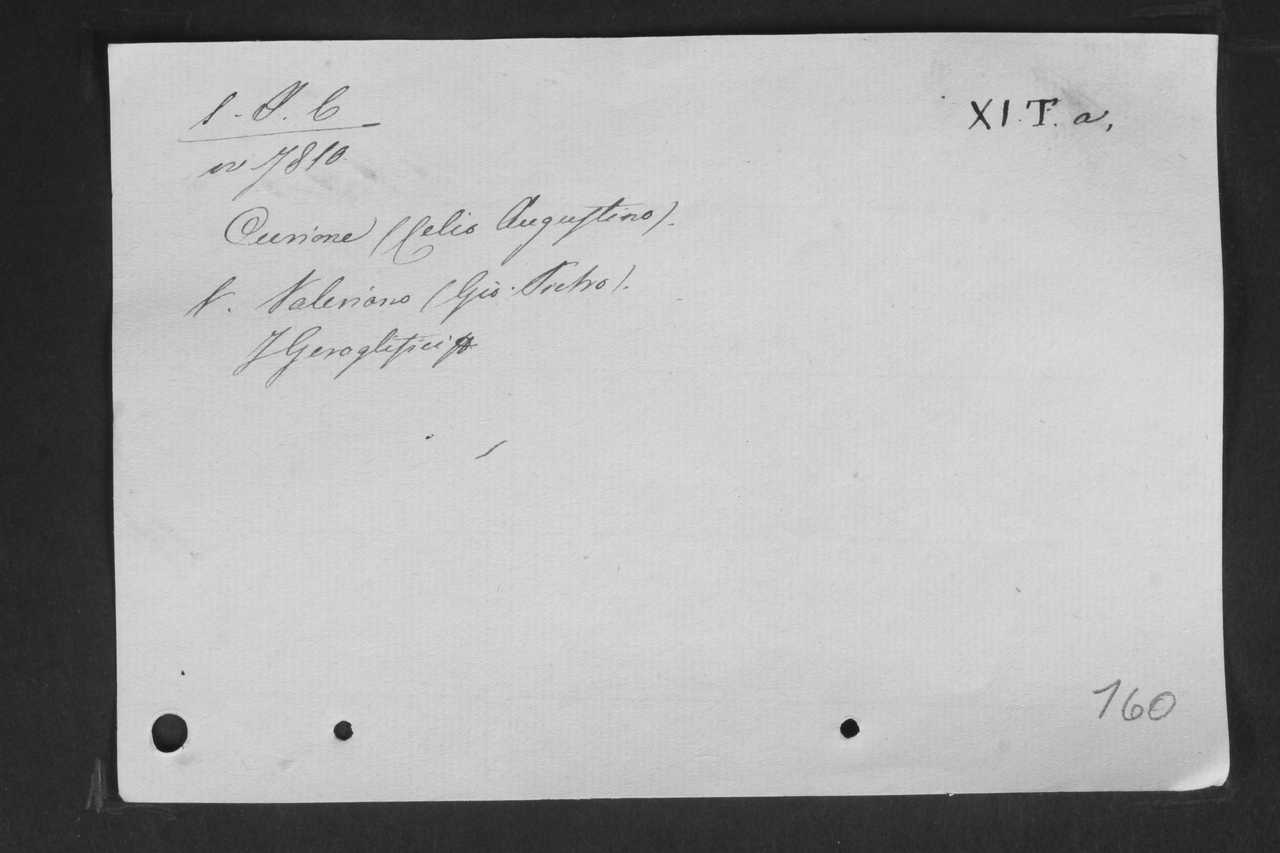 XI. T. a,
7810
Curione (Celio Augustino).
V. Valeriano (Gio. Pietro).
I Geroglifici
160